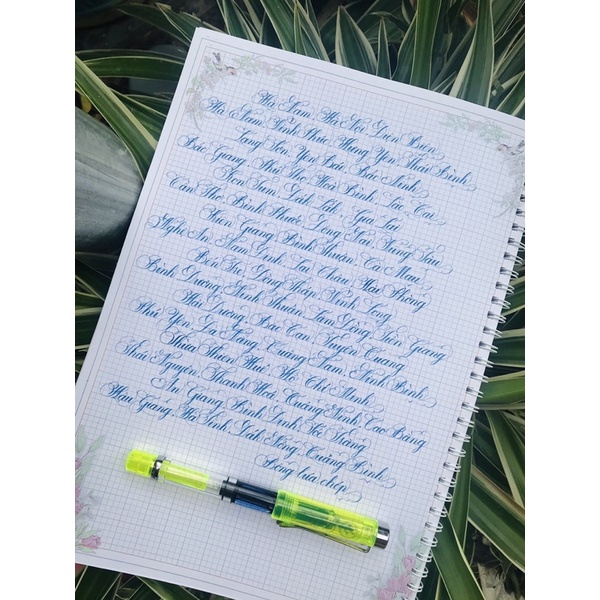 Hà Nam, Hà Nội, Điện Biên
Hà Nam Ninh Phúc, Hưng Yên, Thái Bình
Lạng Sơn, Yên Bái, Bắc Ninh
Bắc Giang, Phú Thọ, Hoà Bình, Lào Cai
Kon Tum, Đắk Lắk, Gia Lai
Cần Thơ, Bình Phước, Long An, Vũng Tàu
Kiên Giang, Bình Thuận, Cà Mau
Nghệ An, Nam Định, Lai Châu, Hải Phòng
Bến Tre, Đồng Tháp, Vĩnh Long
Bình Dương, Ninh Thuận, Lâm Đồng, Tiền Giang
Hải Dương, Bắc Cạn, Tuyên Quang
Phú Yên, Đà Nẵng, Quảng Nam, Ninh Bình
Thừa Thiên Huế, Hồ Chí Minh
Thái Nguyên, Thanh Hoá, Quảng Ninh, Cao Bằng
An Giang, Bình Định, Sóc Trăng
Hậu Giang, Hà Tĩnh, Đắk Nông, Quảng Bình
Bống lúa chép